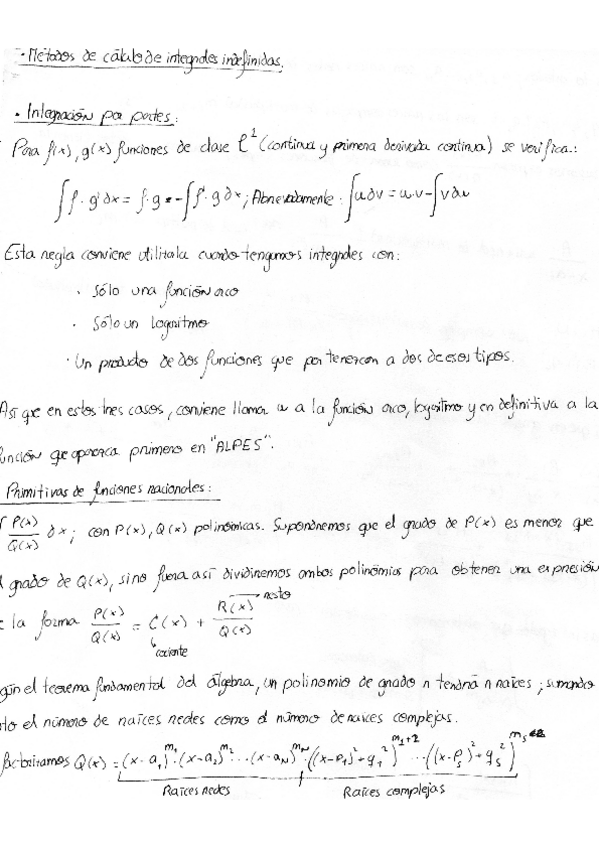 · Métodos de cálculo de integrales indefinidas.
· Integración por partes:
Para f(x), g(x) funciones de clase C¹ (continua y primera derivada continua) se verifica:
∫f·g' dx = f·g - ∫f'·g dx; Abreviadamente: ∫u dv = u·v - ∫v du
Esta regla conviene utilizarla cuando tengamos integrales con:
· Sólo una función arco
· Sólo un logaritmo
· Un producto de dos funciones que pertenezcan a dos de esos tipos.
Así que en estos tres casos, conviene llamar u a la función arco, logaritmo y en definitiva a la
función que aparezca primero en "ALPES".
Primitivas de funciones racionales:
∫ P(x)/Q(x) dx; con P(x), Q(x) polinómicas. Supondremos que el grado de P(x) es menor que
el grado de Q(x), si no fuera así dividiremos ambos polinomios para obtener una expresión
resto
de la forma P(x)/Q(x) = C(x) + R(x)/Q(x)
cociente
según el teorema fundamental del álgebra, un polinomio de grado n tendrá n raíces; sumando
tanto el número de raíces reales como el número de raíces complejas.
factorizamos Q(x) = (x-a₁)^m₁ · (x-a₂)^m₂ ... (x-a_N)^m_N · ((x-p₁)²+q₁²) ... ((x-p_s)²+q_s²)
Raíces reales Raíces complejas